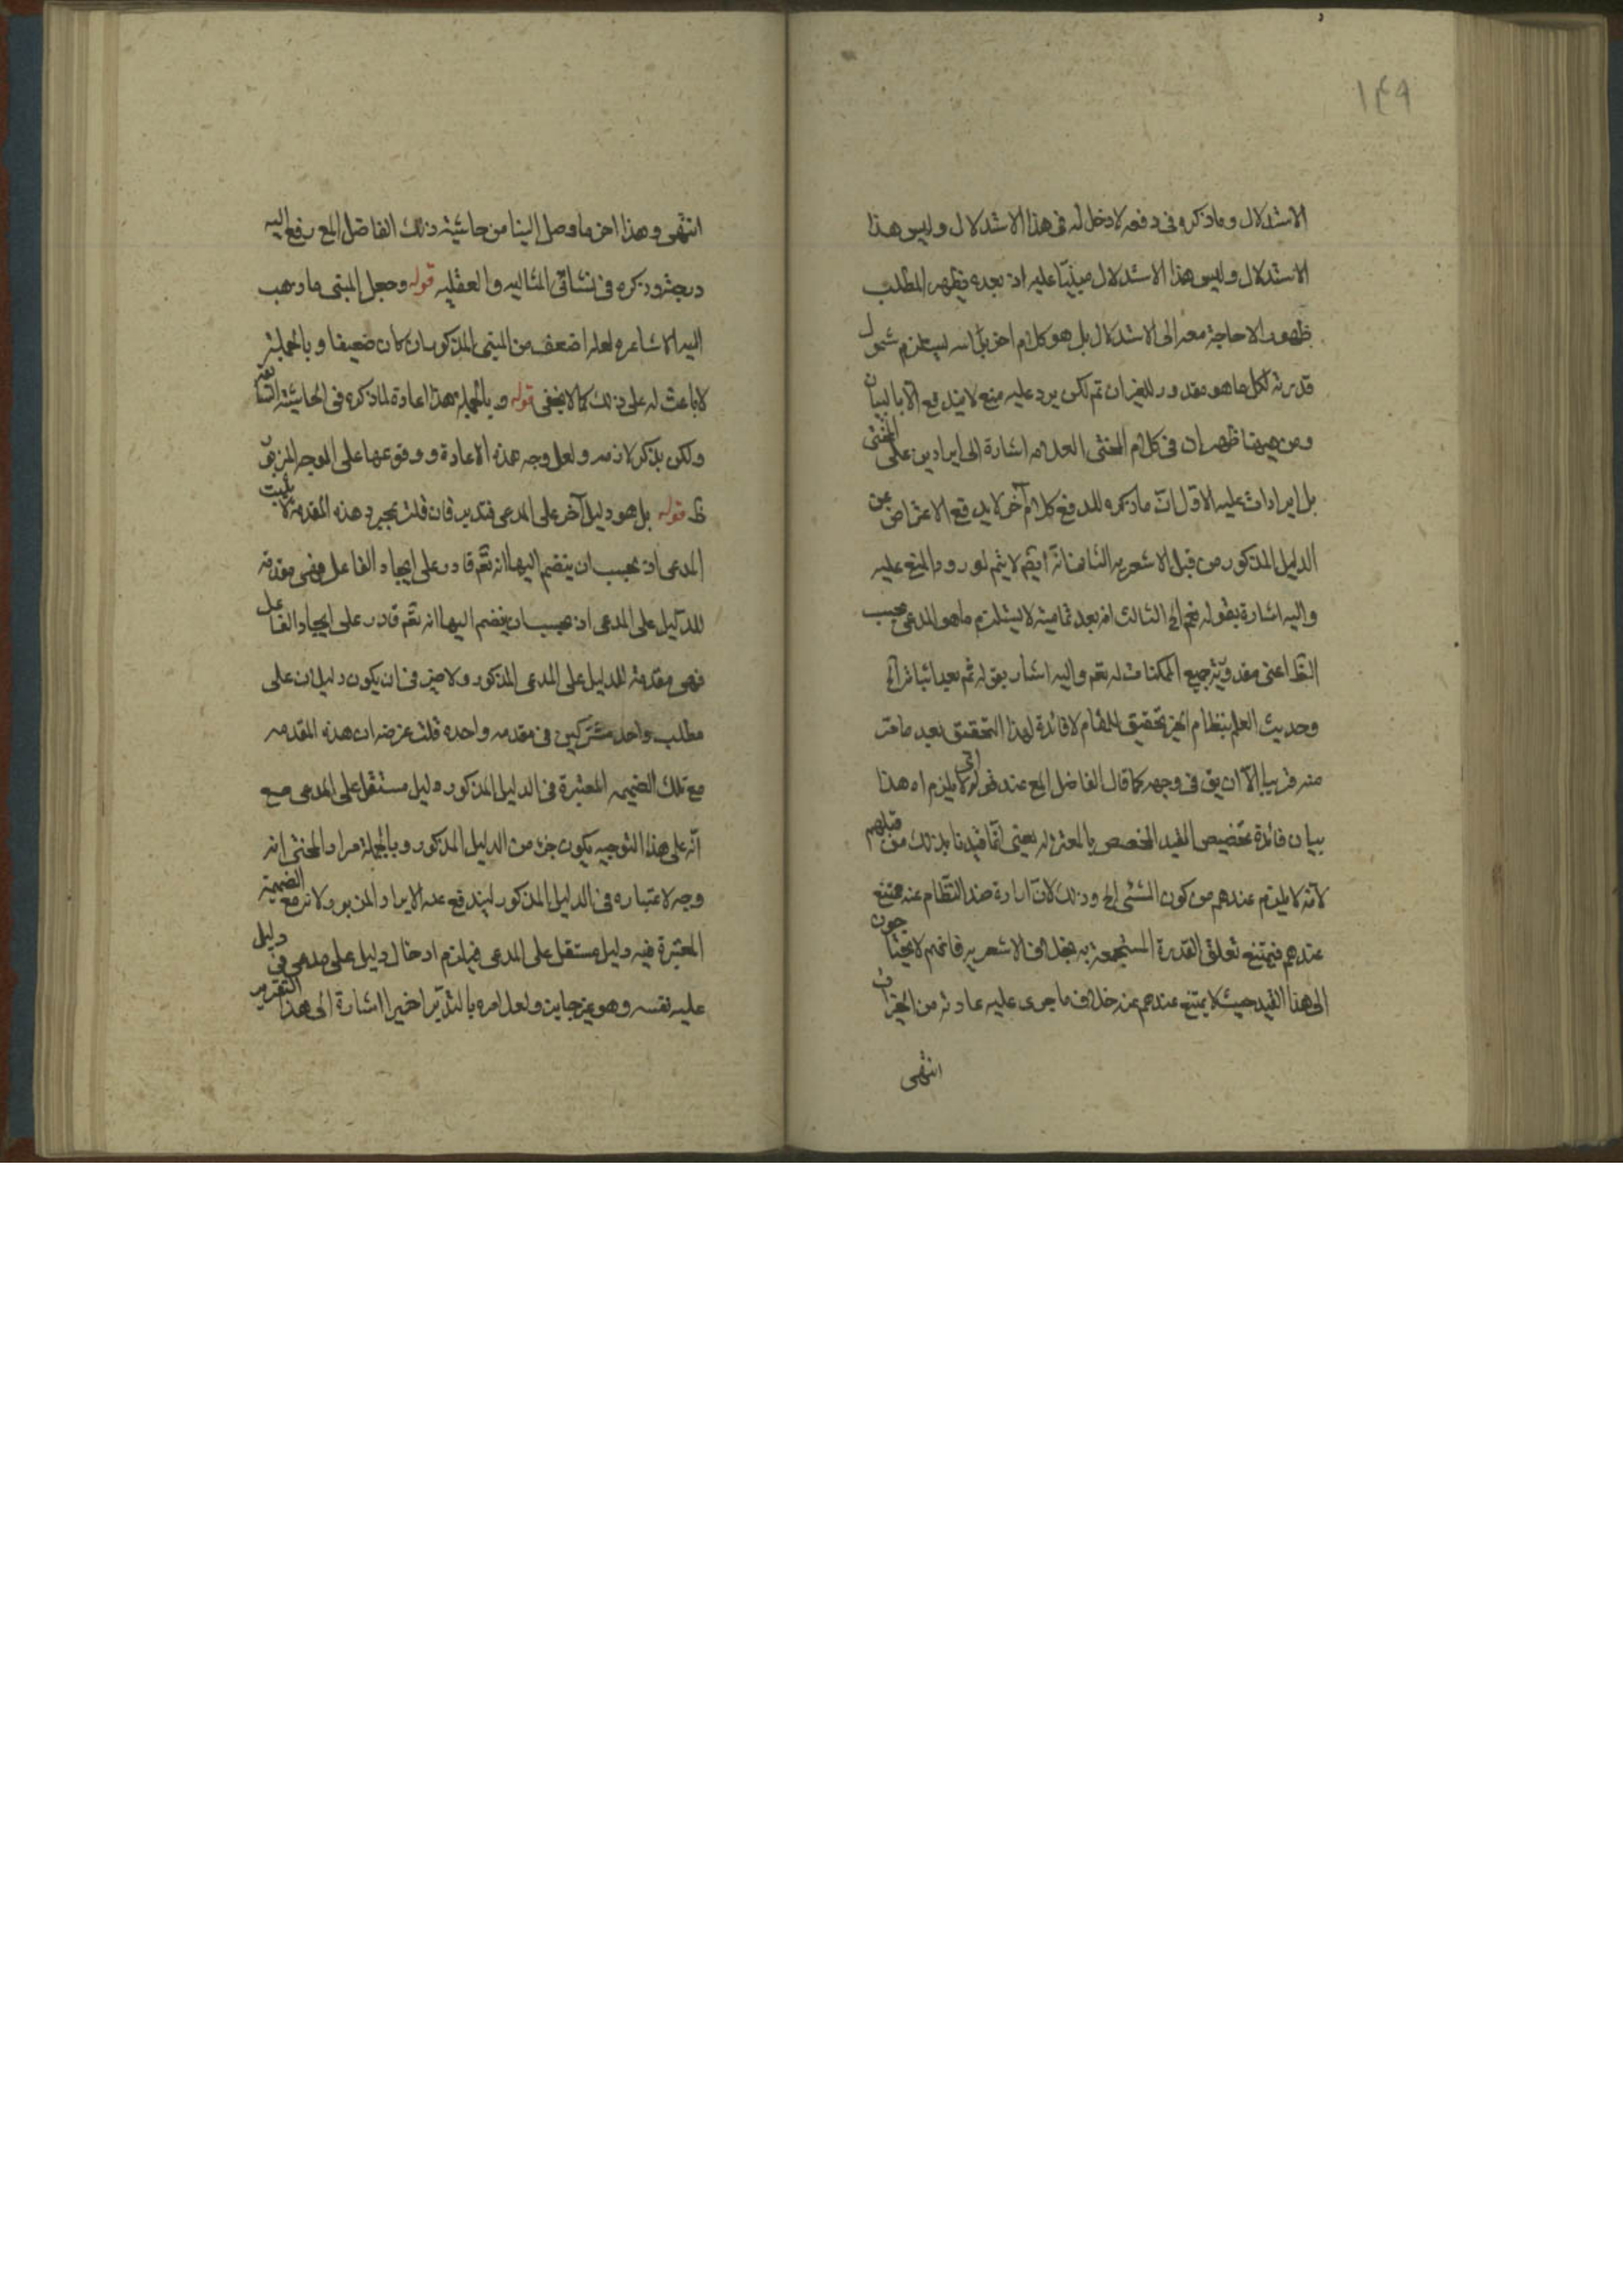 ١٤٩
الاستدلال وما ذكره فى دفعه لا دخل له فى هذا الاستدلال وليس هذا
الاستدلال وليس هذا الاستدلال مبنيّا عليه اذ بعده يظهر المطلب
ظهورا لا حاجة معه الى الاستدلال بل هو كلام اخر بل انه يستلزم شمول
قدرته لكل ما هو مقدور للغير ان تم لكن يرد عليه منع لا يندفع الا بالبيان
ومن هيهنا ظهر ان فى كلام المحشى العلامه اشارة الى ايرادين على المحشى
بل ايرادات عليه الاول انّ ما ذكره للدفع كلام آخر لا يدفع الاعتراض عن
الدليل المذكور من قبل الاشعريه الثانى انّه ايضم لا يتم لورود المنع عليه
واليه اشارة بقوله فتم الخ الثالث انه بعد تماميته لا يستلزم ما هو المدعى بحسب
الظّ اعنى مقدوريّة جميع الممكنات له تعم واليه اشار بقوله ثم بعد اثباته الخ
وحديث العلم بنظام الخير تحقيق للمقام لا فائدة لهذا التحقيق بعيد ما مرّ
منه قريبا الّا ان يق فى وجهه كما قال الفاضل المع عند قوله لا يلزم اه هذا
بيان فائدة تخصيص القيد المخصص بالمعتزله يعنى انّما قيدنا بذلك من قبلهم
لانّه لا يلزم عندهم من كون الشئى الخ وذلك لانّ ارادة ضد النّظام عنه ممتنع
عندهم فيمتنع تعلق القدرة المستجمعة به بخلاف الاشعريه فانهم لا يحتاجون
الى هذا القيد حيث لا يمتنع عندهم عنه خلاف ما جرى عليه عادته من الخيرات
انتهى
انتهى وهذا اخر ما وصل الينا من حاشيته ذلك الفاضل المع رفع اليه
درجته وذكره فى نشأتى المثاليه والعقليه قوله وجعل المبنى ما ذهب
اليه الاشاعره لعله اضعف من المبنى المذكور ان كان ضعيفا وبالجملة
لا باعث له على ذلك كما لا يخفى قوله وبالجملة هذا اعادة لما ذكره فى الحاشية السابقة
ولكن بذكر لازمه ولعل وجه هذه الاعادة ووقوعها على الوجه المزبور
ظ قوله بل هو دليل آخر على المدعى فتدبر فان قلت بمجرد هذه المقدمة لا يثبت
المدعى اذ يجب ان ينضم اليها انه تعم قادر على ايجاد الفاعل فهى مقدمة
للدليل على المدعى اذ يجب ان ينضم اليها انه تعم قادر على ايجاد الفاعل
فهى مقدمة للدليل على المدعى المذكور ولا ضير فى ان يكون دليلان على
مطلب واحد مشتركين فى مقدمه واحده قلت غرضه ان هذه المقدمه
مع تلك الضميمه المعتبرة فى الدليل المذكور دليل مستقل على المدعى مع
انّه على هذا التوجيه يكون جزء من الدليل المذكور وبالجملة مراد المحشى انه
وجه لاعتباره فى الدليل المذكور ليندفع عنه الايراد المزبور لانه مع الضميمة
المعتبرة فيه دليل مستقل على المدعى فيلزم ادخال دليل على مدعى فى دليل
عليه نفسه وهو غير جايز ولعل امره بالتدبّر اخيرا اشارة الى هذا التقرير